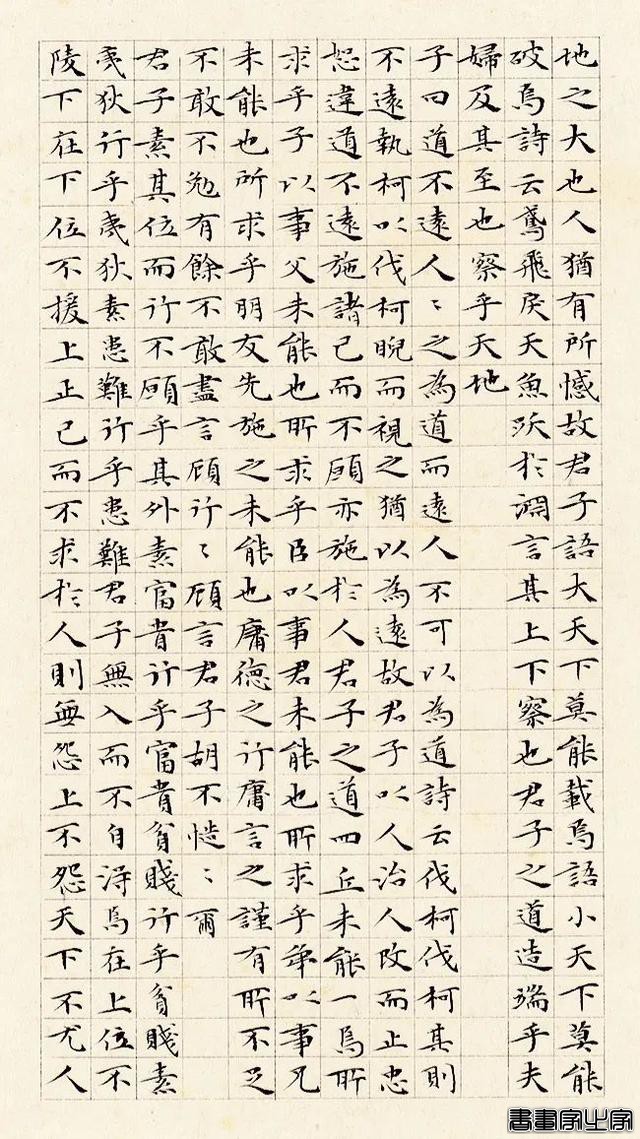 地之大也人猶有所憾故君子語大天下莫能載焉語小天下莫能
破焉詩云鳶飛戾天魚躍於淵言其上下察也君子之道造端乎夫
婦及其至也察乎天地
子曰道不遠人〻之為道而遠人不可以為道詩云伐柯伐柯其則
不遠執柯以伐柯睨而視之猶以為遠故君子以人治人改而止忠
恕違道不遠施諸己而不願亦施於人君子之道四丘未能一焉所
求乎子以事父未能也所求乎臣以事君未能也所求乎弟以事兄
未能也所求乎朋友先施之未能也庸德之行庸言之謹有所不足
不敢不勉有餘不敢盡言顧行〻顧言君子胡不慥〻爾
君子素其位而行不願乎其外素富貴行乎富貴貧賤行乎貧賤素
夷狄行乎夷狄素患難行乎患難君子無入而不自得焉在上位不
陵下在下位不援上正己而不求於人則無怨上不怨天下不尤人
書畫家之家